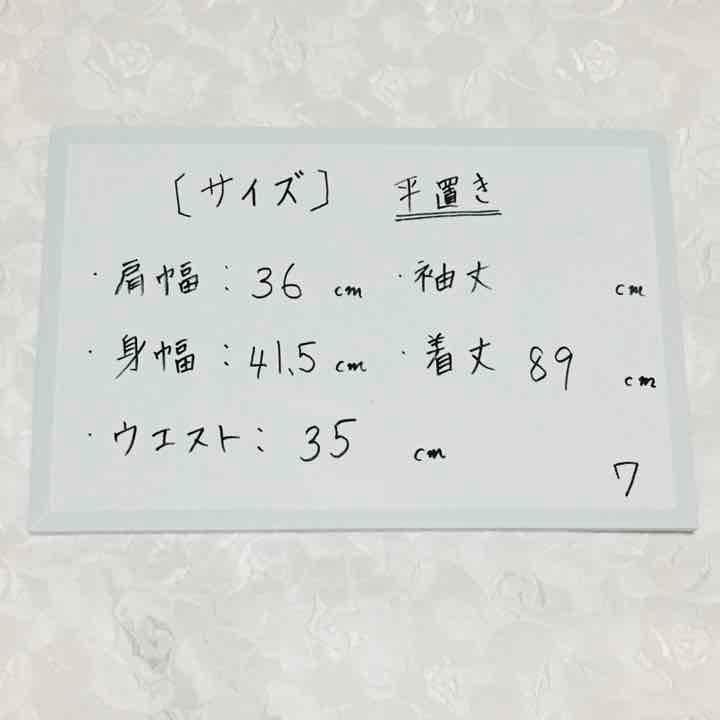 ［サイズ］ 平置き
・肩幅：36 cm ・袖丈 cm
・身幅：41.5 cm ・着丈 89 cm
・ウエスト：35 cm
7